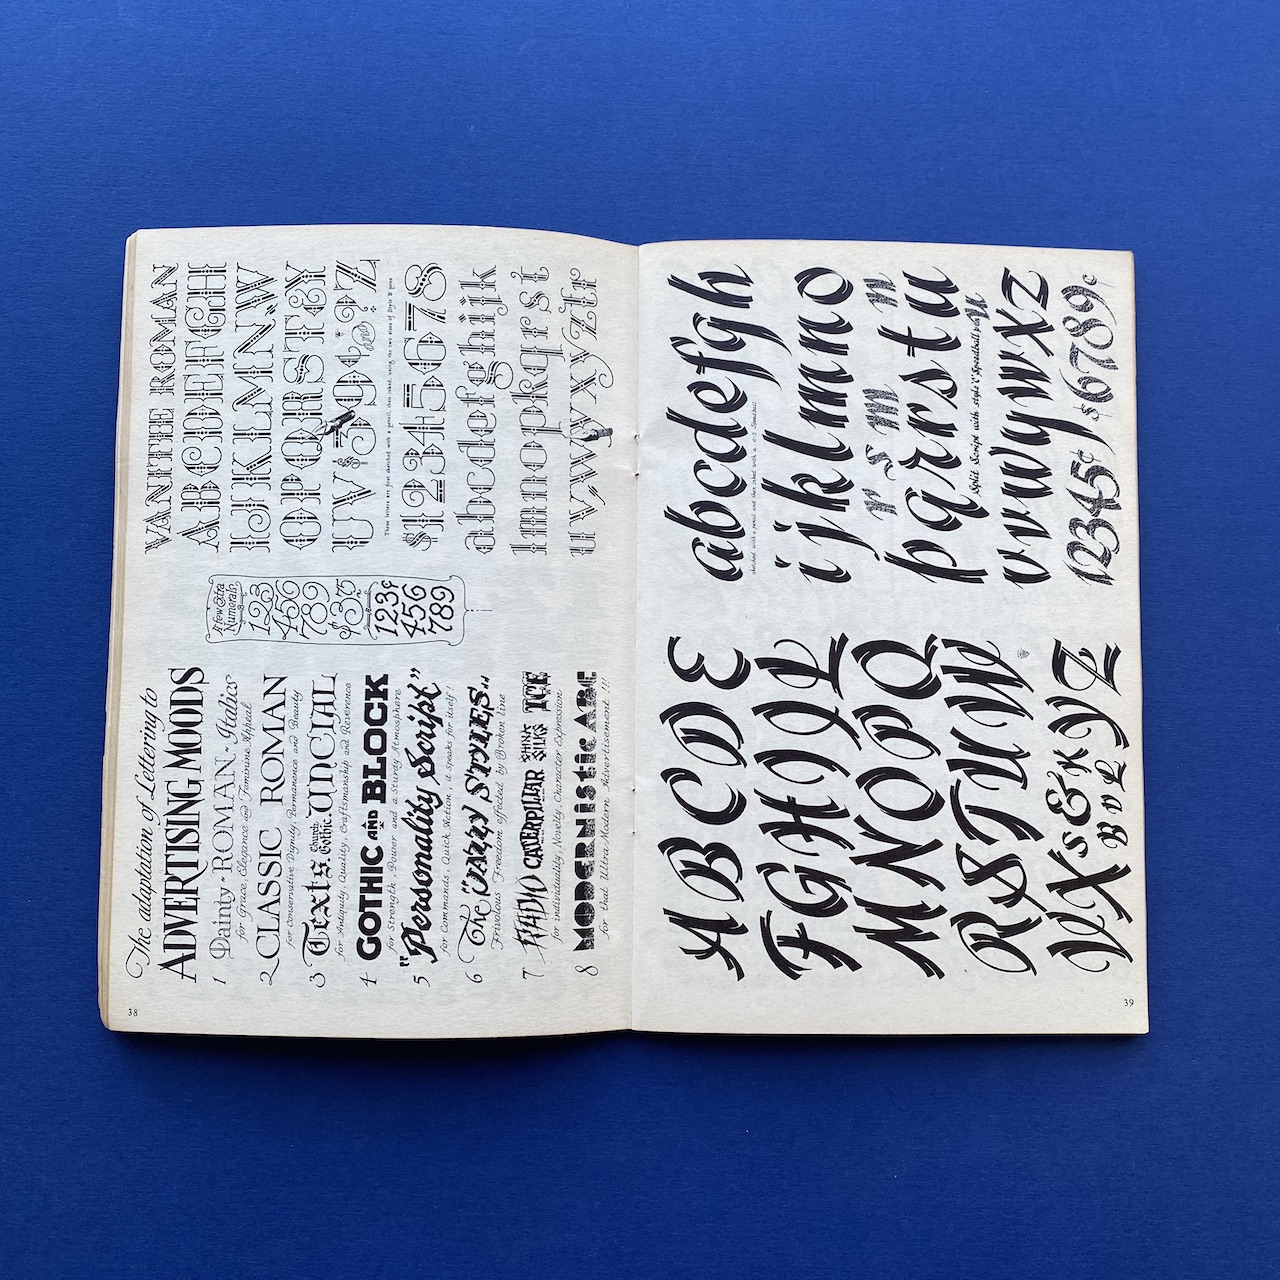 The adaptation of Lettering to
ADVERTISING MOODS
1 Dainty-ROMAN-Italics
for Grace, Elegance and Feminine Appeal
2 CLASSIC ROMAN
for Conservative Dignity Permanence and Beauty
3 Texts Church Gothic UNCIAL
for Antiquity, Quality, Craftsmanship and Reverence
4 GOTHIC AND BLOCK
for Strength, Power and a Sturdy Atmosphere
5 "Personality Script"
for Commands, Quick Action, it speaks for itself!
6 The "JAZZY STYLES"
Frivolous Freedom effected by Broken line
7 RADIO CATERPILLAR SHINY SILKS ICE
for individuality, Novelty, Character Expression
8 MODERNISTIC ABC
for that Ultra Modern Advertisement!!!
38
A few Extra
Numerals
123
456
789
$375
123¢
456
789
VANITIE ROMAN
ABCDEFGH
IJKLMNW
OPQRSTXY
UV $39¢ and ? Z
These letters are first sketched with a pencil, then inked, using the two sizes of Style B pens
$12345678
abcdefghijk
lmnopkqrst
uvwwxyzfr
ABCDE
FGHIJL
MNOPQ
RSTUW
VXs&KYZ
BvL
39
abcdefgh
sketched with a pencil and then inked with a C-2 Speedball
ijklmno
r s m n
pqrstu
Split Script with style "C" Speedball pen
vwwywxz
12345¢ $6789¢